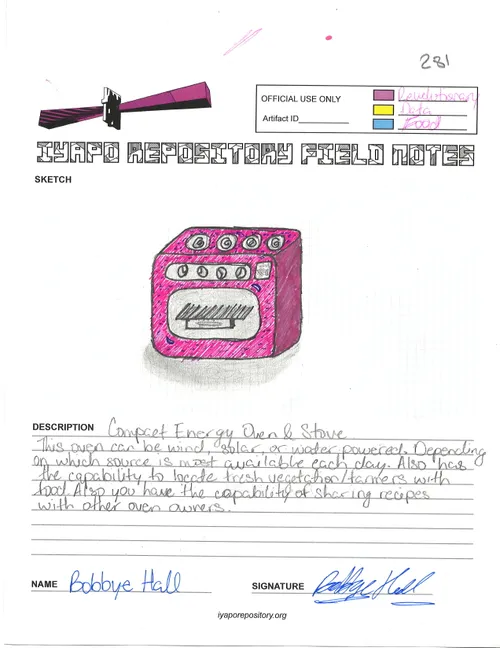 281
OFFICIAL USE ONLY
Artifact ID
Revolutionary
Data
Food
IYAPO REPOSITORY FIELD NOTES
SKETCH
DESCRIPTION Compact Energy Oven & Stove
This oven can be wind, solar, or water powered. Depending
on which source is most available each day. Also has
the capability to locate fresh vegetation/farmers with
food. Also you have the capability of sharing recipes
with other oven owners.
NAME Bobbye Hall SIGNATURE Bobbye Hall
iyaporepository.org